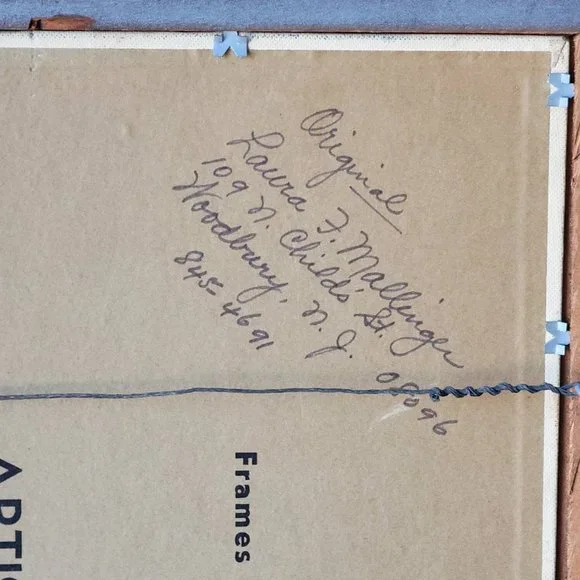 Original
Laura F. Mallinger
109 N. Childs St.
Woodbury, N. J. 08096
845-4691
Frames